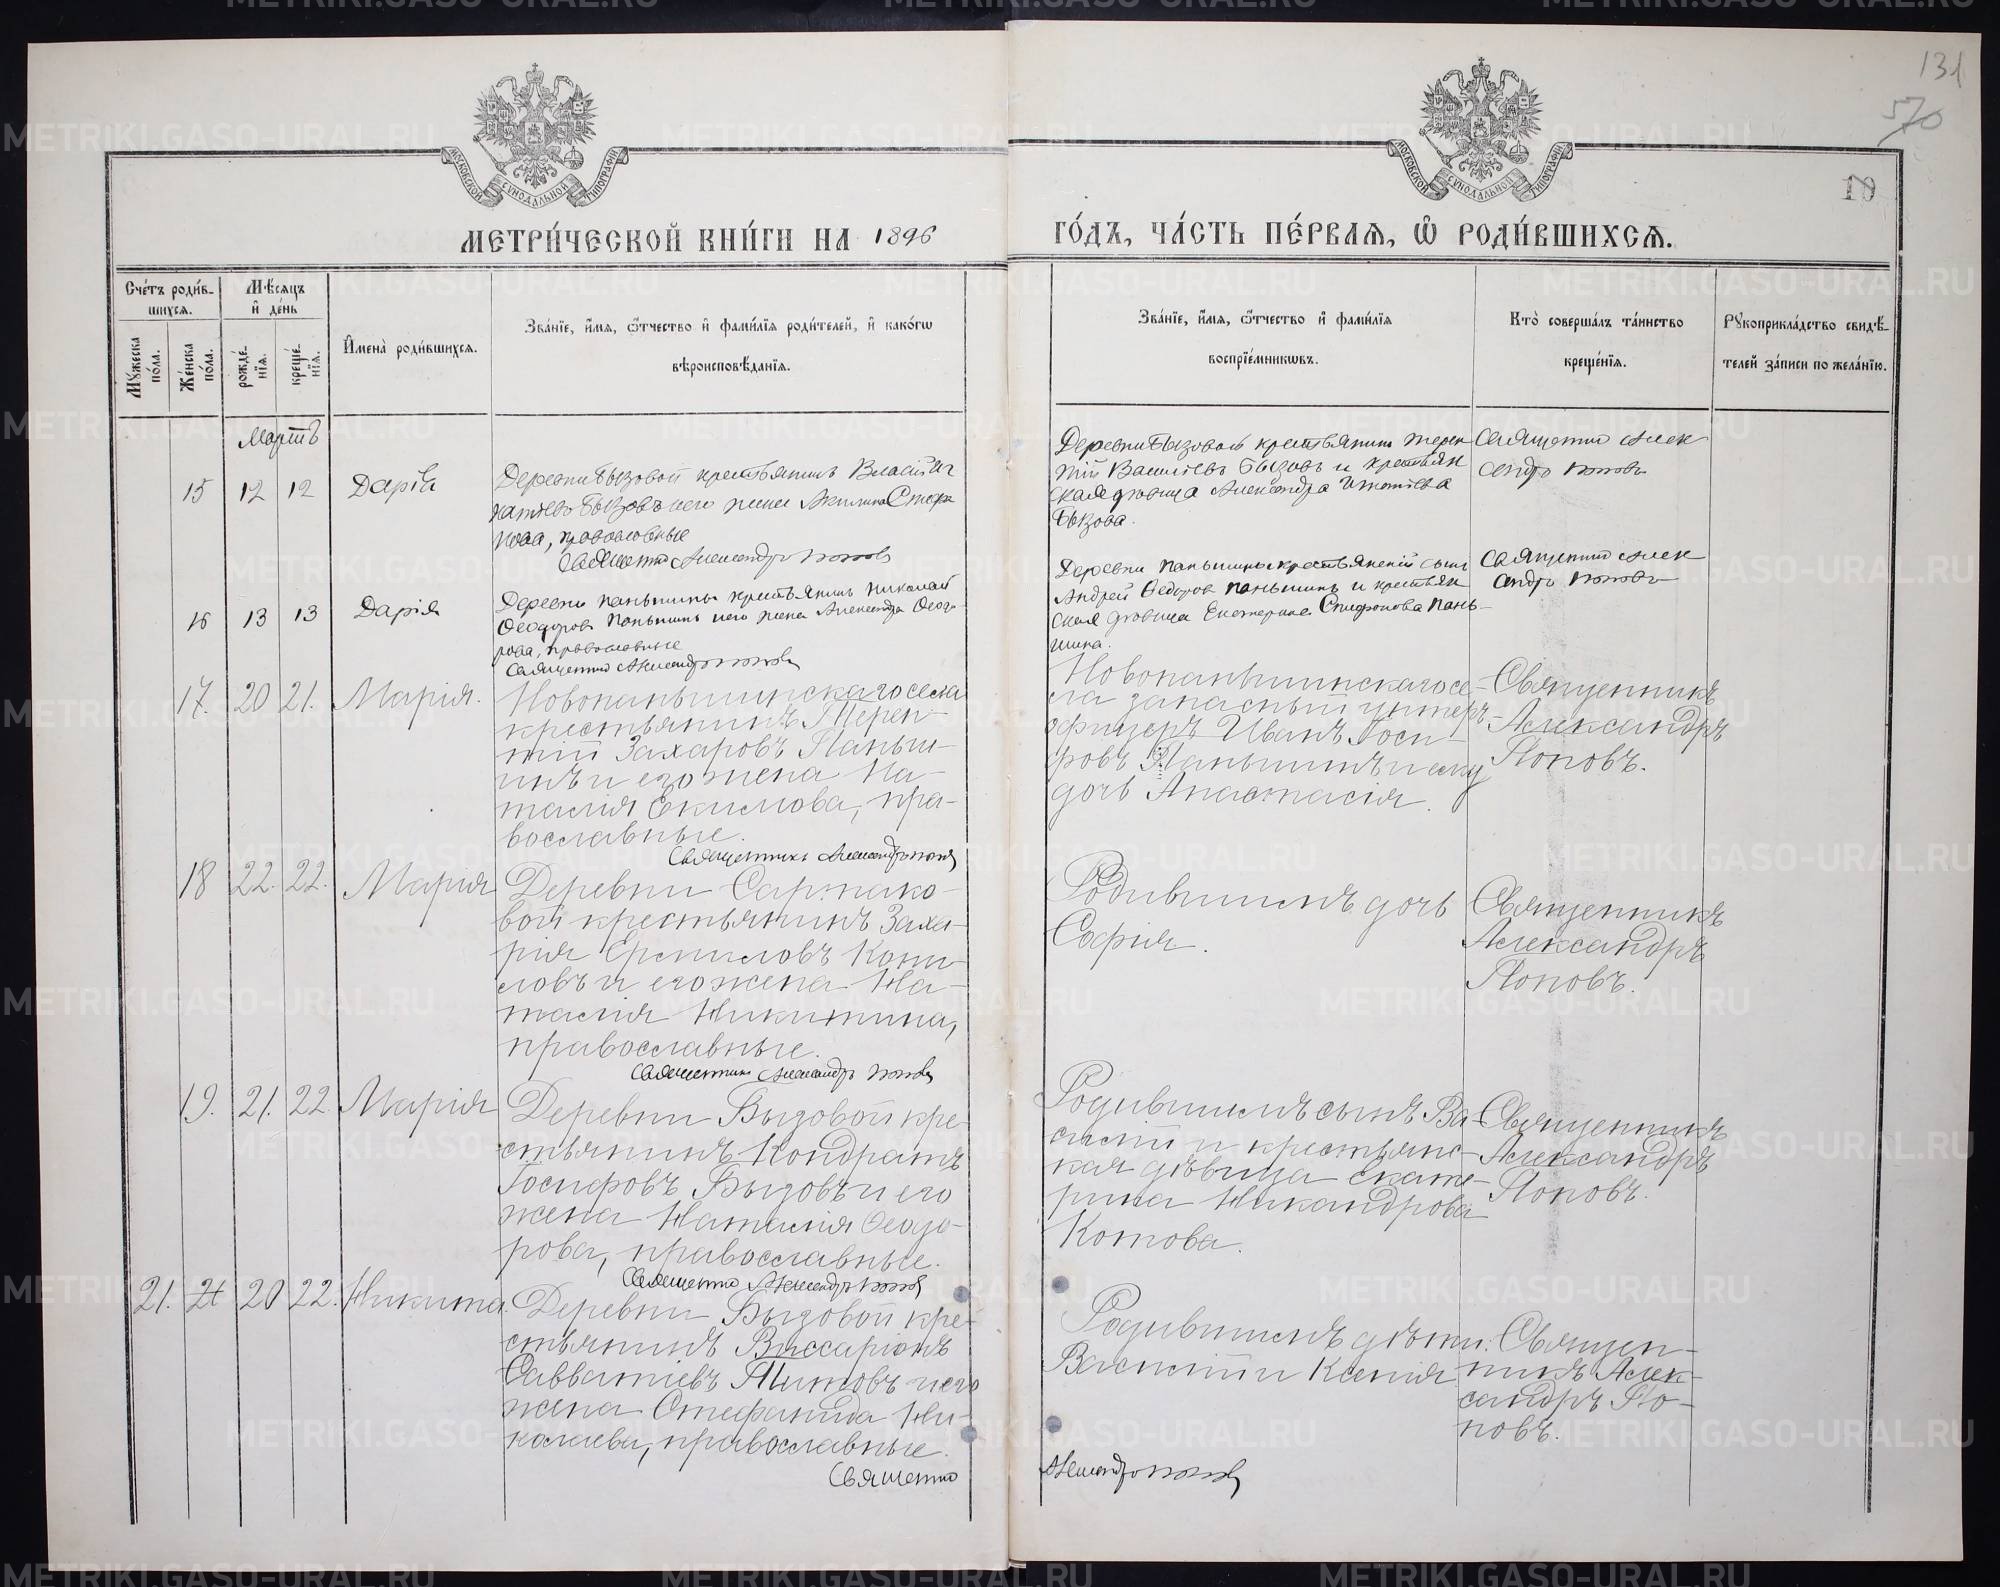 131
570
10
МОСКОВСКОЙ СѴНОДАЛЬНОЙ ТИПОГРАФІИ
МОСКОВСКОЙ СѴНОДАЛЬНОЙ ТИПОГРАФІИ
МЕТРИ́ЧЕСКОЙ КНИ́ГИ НА 1896
ГО́ДЪ, ЧА́СТЬ ПЕ́РВАѦ, Ѿ РОДИ́ВШИХСѦ.
Сче́тъ роди́в-
шихсѧ.
Мѣ́сѧцъ
и҆ де́нь
Мꙋ́жеска
по́ла.
Же́нска
по́ла.
рожде́-
нїѧ.
креще́-
нїѧ.
И҆мена̀ роди́вшихсѧ.
Зва́нїе, и҆́мѧ, ѻ҆́тчество и҆ фами́лїѧ роди́телей, и҆ како́гѡ
вѣроисповѣ́данїѧ.
Зва́нїе, и҆́мѧ, ѻ҆́тчество и҆ фами́лїѧ
воспрїе́мникѡвъ.
Кто̀ соверша́лъ та́инство
креще́нїѧ.
Рꙋкоприкла́дство свидѣ́-
телей за́писи по жела́нїю.
Мартъ
15 12 12 Дарія
Деревни Бызовой крестьянинъ Власій Иг
натьевъ Бызовъ и его жена Акилина Стефа
нова, православные
Священникъ Александръ Поповъ
Деревни Бызовой крестьянинъ Терен
тій Васильевъ Бызовъ и крестьян
ская дѣвица Александра Игнатьева
Бызова.
Священникъ Алек
сандръ Поповъ
16 13 13 Дарія
Деревни Паньшины крестьянинъ Николай
Ѳеодоровъ Паньшинъ и его жена Александра Ѳеодо-
рова, православные
Священникъ Александръ Поповъ
Деревни Паньшины крестьянскій сынъ
Андрей Ѳедоровъ Паньшинъ и крестьян
ская дѣвица Екатерина Спиридонова Пань-
шина.
Священникъ Алек
сандръ Поповъ
17. 20 21. Марія.
Новопаньшинскаго села
крестьянинъ Терен-
тій Захаровъ Паньш-
инъ и его жена На-
талія Екимова, пра-
вославные.
Священникъ Александръ Поповъ
Новопаньшинскаго се-
ла запасный унтеръ-
офицеръ Иванъ Іоси-
фовъ Паньшинъ и его
дочь Анастасія.
Священникъ
Александръ
Поповъ.
18 22. 22. Марія
Деревни Сармако-
вой крестьянинъ Заха-
рія Ермиловъ Копы-
ловъ и его жена На-
талія Никитина,
православные.
Священникъ Александръ Поповъ
Родившимъ дочь
Софія.
Священникъ
Александръ
Поповъ.
19. 21. 22 Марія
Деревни Бызовой кре-
стьянинъ Кондратъ
Іосифовъ Бызовъ и его
жена Наталія Ѳеодо-
рова, православные.
Священникъ Александръ Поповъ
Родившимъ сынъ Ва-
силій и крестьянс-
кая дѣвица Екате-
рина Никандрова
Котова.
Священникъ
Александръ
Поповъ.
21. 21 20 22. Никита.
Деревни Бызовой кре-
стьянинъ Виссаріонъ
Савватіевъ Титовъ и его
жена Стефанида Ни-
колаева, православные.
Священникъ
Александръ Поповъ
Родившимъ дѣти:
Василій и Ксенія
Священ-
никъ Алек-
сандръ По-
повъ.